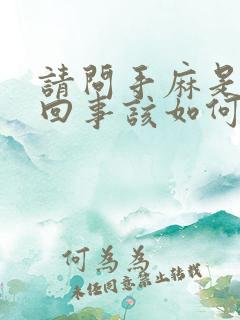 請問手麻是
回事該如何
何為為
未經同意禁止轉載